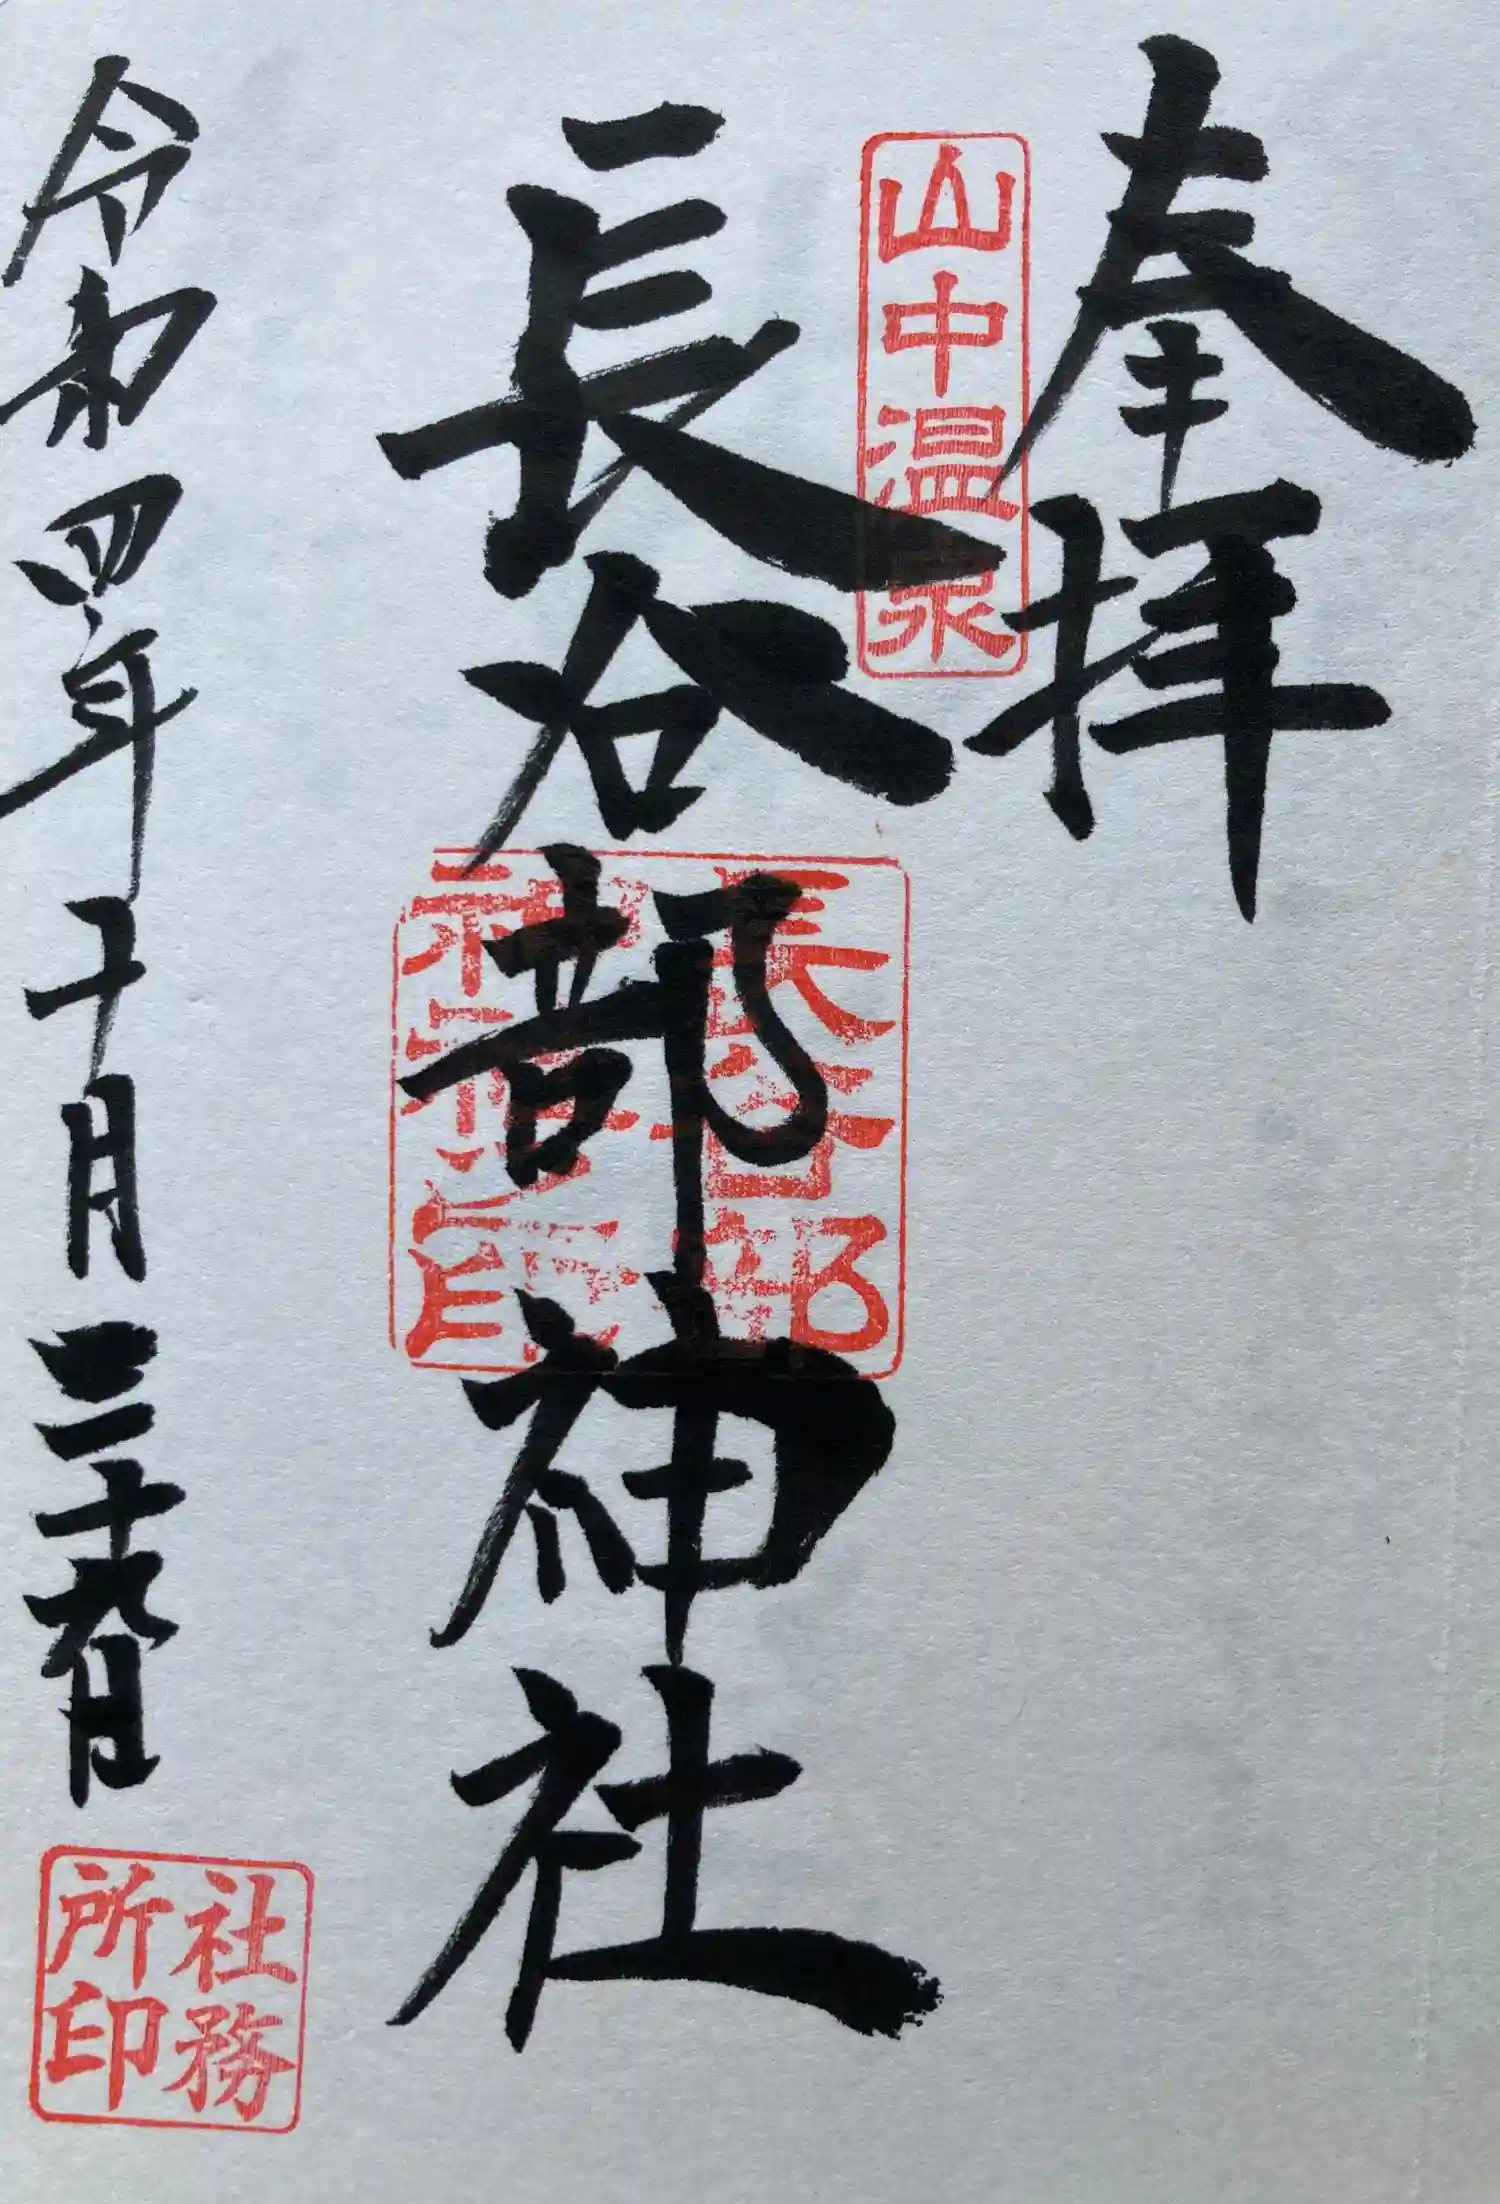 奉拝
山中温泉
長谷部神社
長谷部
神社之印
令和四年十月二十九日
社務
所印